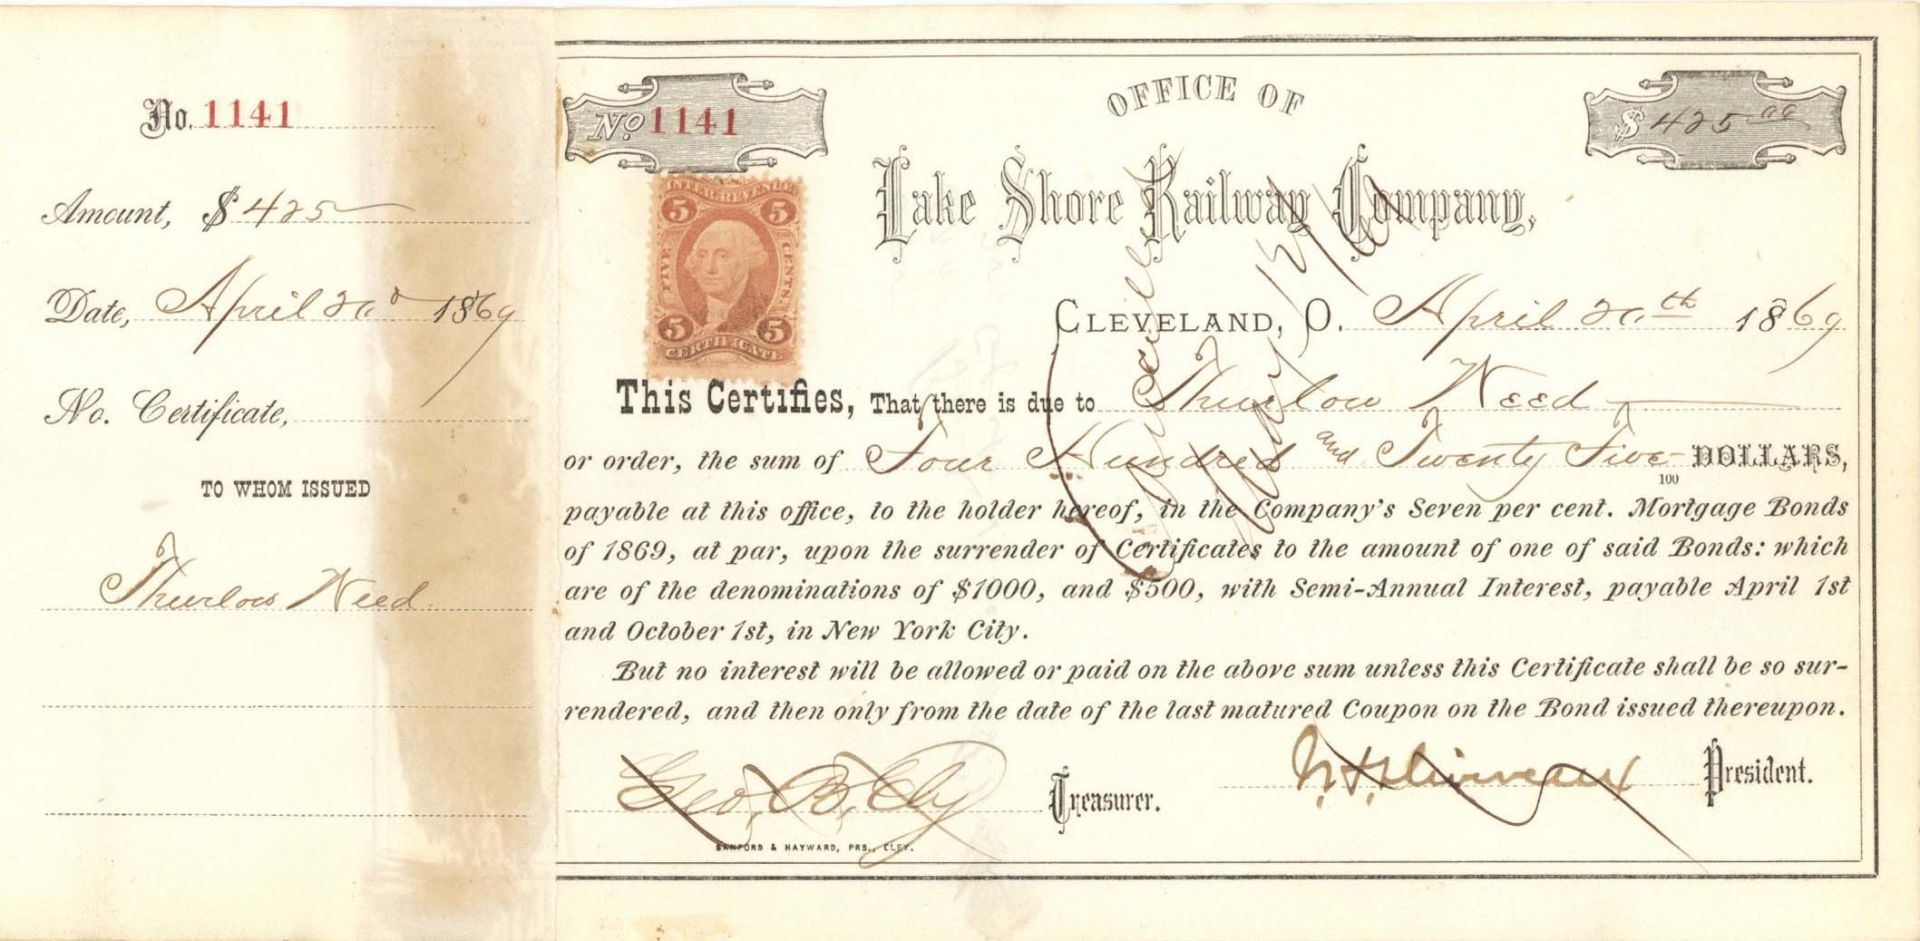 No. 1141
Amount, $ 425
Date, April 20th 1869
No. Certificate,
TO WHOM ISSUED
Thurlow Weed
No 1141
OFFICE OF
$ 425 00
Lake Shore Railway Company,
INTER. REVENUE
5 5
FIVE CENTS.
5 5
CERTIFICATE
CLEVELAND, O. April 20th 1869
This Certifies, That there is due to Thurlow Weed
or order, the sum of Four Hundred and Twenty Five 100 DOLLARS,
payable at this office, to the holder hereof, in the Company's Seven per cent. Mortgage Bonds
of 1869, at par, upon the surrender of Certificates to the amount of one of said Bonds: which
are of the denominations of $1000, and $500, with Semi-Annual Interest, payable April 1st
and October 1st, in New York City.
But no interest will be allowed or paid on the above sum unless this Certificate shall be so sur-
rendered, and then only from the date of the last matured Coupon on the Bond issued thereupon.
Geo. B. Ely Treasurer.
President.
SANFORD & HAYWARD, PRS., CLEV.
Cancelled
May 13/69